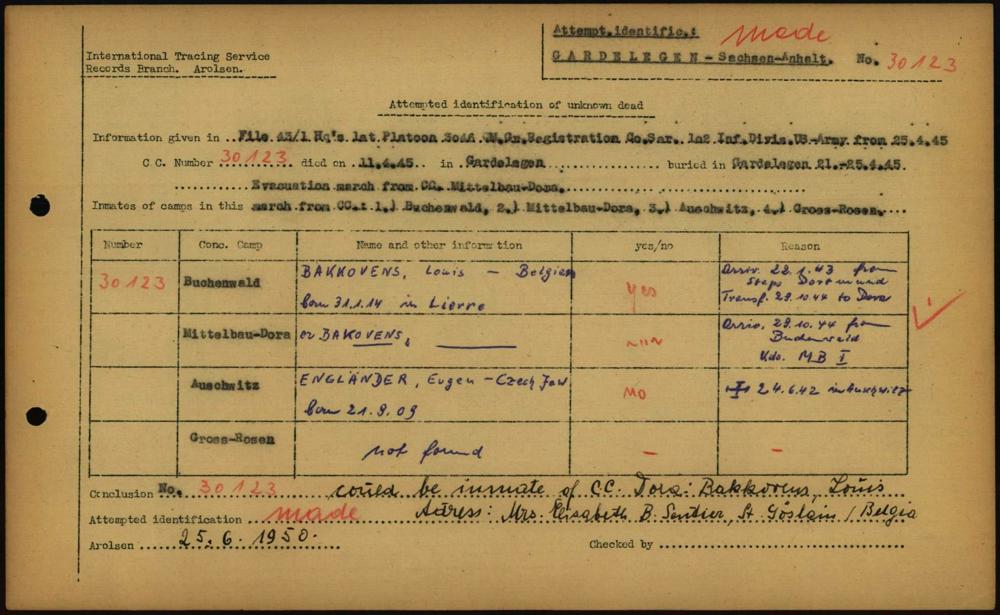 Attempt.identific.: made
International Tracing Service
Records Branch. Arolsen.
GARDELEGEN - Sachsen-Anhalt. No. 30123
Attempted identification of unknown dead
Information given in ..File A3/1 Hq's 1st Platoon 3044 QM.Gr.Registration Co.Sar. 102 Inf.Divis.US-Army from 25.4.45
C C. Number 30123 died on .11.4.45.. in .Gardelegen................ buried in Gardelegen 21.-25.4.45.
Evacuation march from CC. Mittelbau-Dora.
Inmates of camps in this march from CC.: 1.) Buchenwald, 2.) Mittelbau-Dora, 3.) Auschwitz, 4.) Gross-Rosen.
Number Conc. Camp Name and other information yes/no Reason
30123 Buchenwald BAKKOVENS, Louis - Belgien yes Arriv. 22.1.43 from
born 31.1.14 in Lierre Stapo Dortmund
Transf. 29.10.44 to Dora
Mittelbau-Dora or BAKOVENS, -"- Arriv. 29.10.44 from
Buchenwald
Kdo. MB I
Auschwitz ENGLÄNDER, Eugen - Czech Jew NO 24.6.42 in Auschwitz
born 21.9.09
Gross-Rosen not found - -
Conclusion No. 30123 could be inmate of CC. Dora: Bakkovens, Louis
Attempted identification made Adress: Mrs. Elisabeth B. Sentier, St Göslain / Belgia
Arolsen 25.6.1950. Checked by